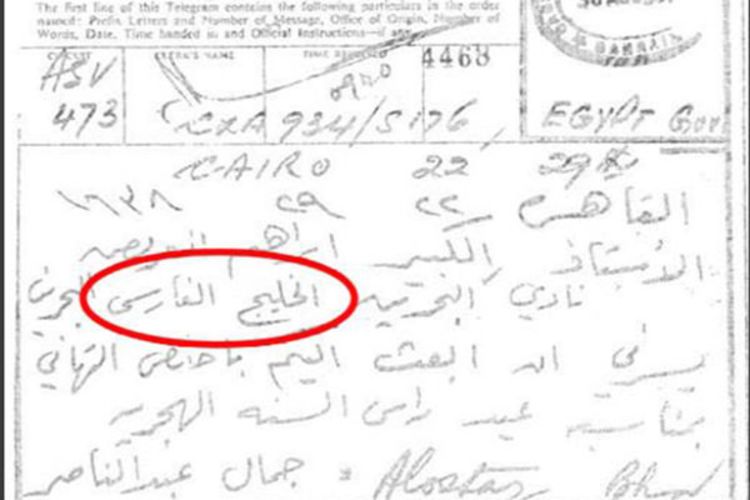 The first line of this Telegram contains the following particulars in the order
named: Prefix Letters and Number of Message, Office of Origin, Number of
Words, Date, Time handed in and Official Instructions—if any.
CLERK'S NAME TIME RECEIVED 4468
ASV
473 CXA 934/S176 EGYPT Gov
BAHRAIN
CAIRO 22 29
القاهرة ٢٢ ٢٩
الأستاذ الكبير ابراهيم
نادي البحرين الخليج الفارسى البحرين
يسرني ان ابعث اليكم باخلص التهاني
بمناسبة عيد راس السنه الهجريه
جمال عبدالناصر